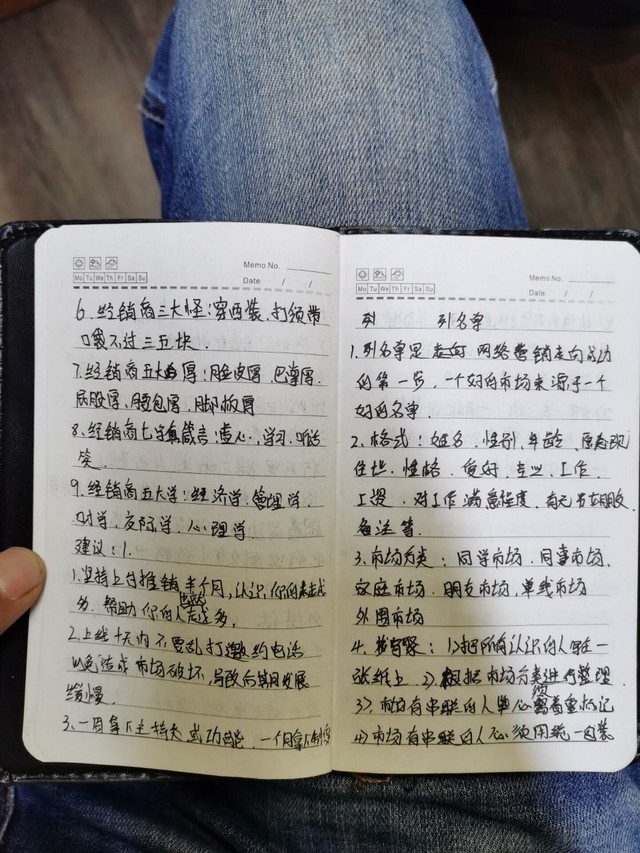 Memo No.
Mo Tu We Th Fr Sa Su
Date / /
6、经销商三大怪:穿西装、打领带
口袋不过三五块.
7、经销商五大厚:脸皮厚、巴掌厚、
屁股厚、腰包厚、脚板厚
8、经销商七字真箴言:虚心、学习、听话
笑.
9、经销商五大学:经济学、管理学、
口才学、交际学、心理学
建议:1、
1、坚持上台推销半个月,认识你的人越
多、帮助你的人越多,
2、上线十天内不要乱打邀约电话
以免造成市场破坏,导致后期发展
缓慢.
3、一月拿下主持 或功能、一个月拿下
Memo No.
Mo Tu We Th Fr Sa Su
Date / /
列 列名单
1、列名单是 走向 网络营销走向成功
的第一步,一个好的市场来源于一个
好的名单.
2、格式:姓名、性别、年龄、原 现
住址、性格、爱好、专业、工作、
工资、对工作满意程度、有无
备注等.
3、市场分类:同学市场、同事市场、
家庭市场、朋友市场、单线市场
外围市场
4、 1)把所有认识的人写在一
张纸上 2)、根据市场分类进行整理
3)、市场有串联的人单 必须 着重标记
4)市场有串联的人必须用统一